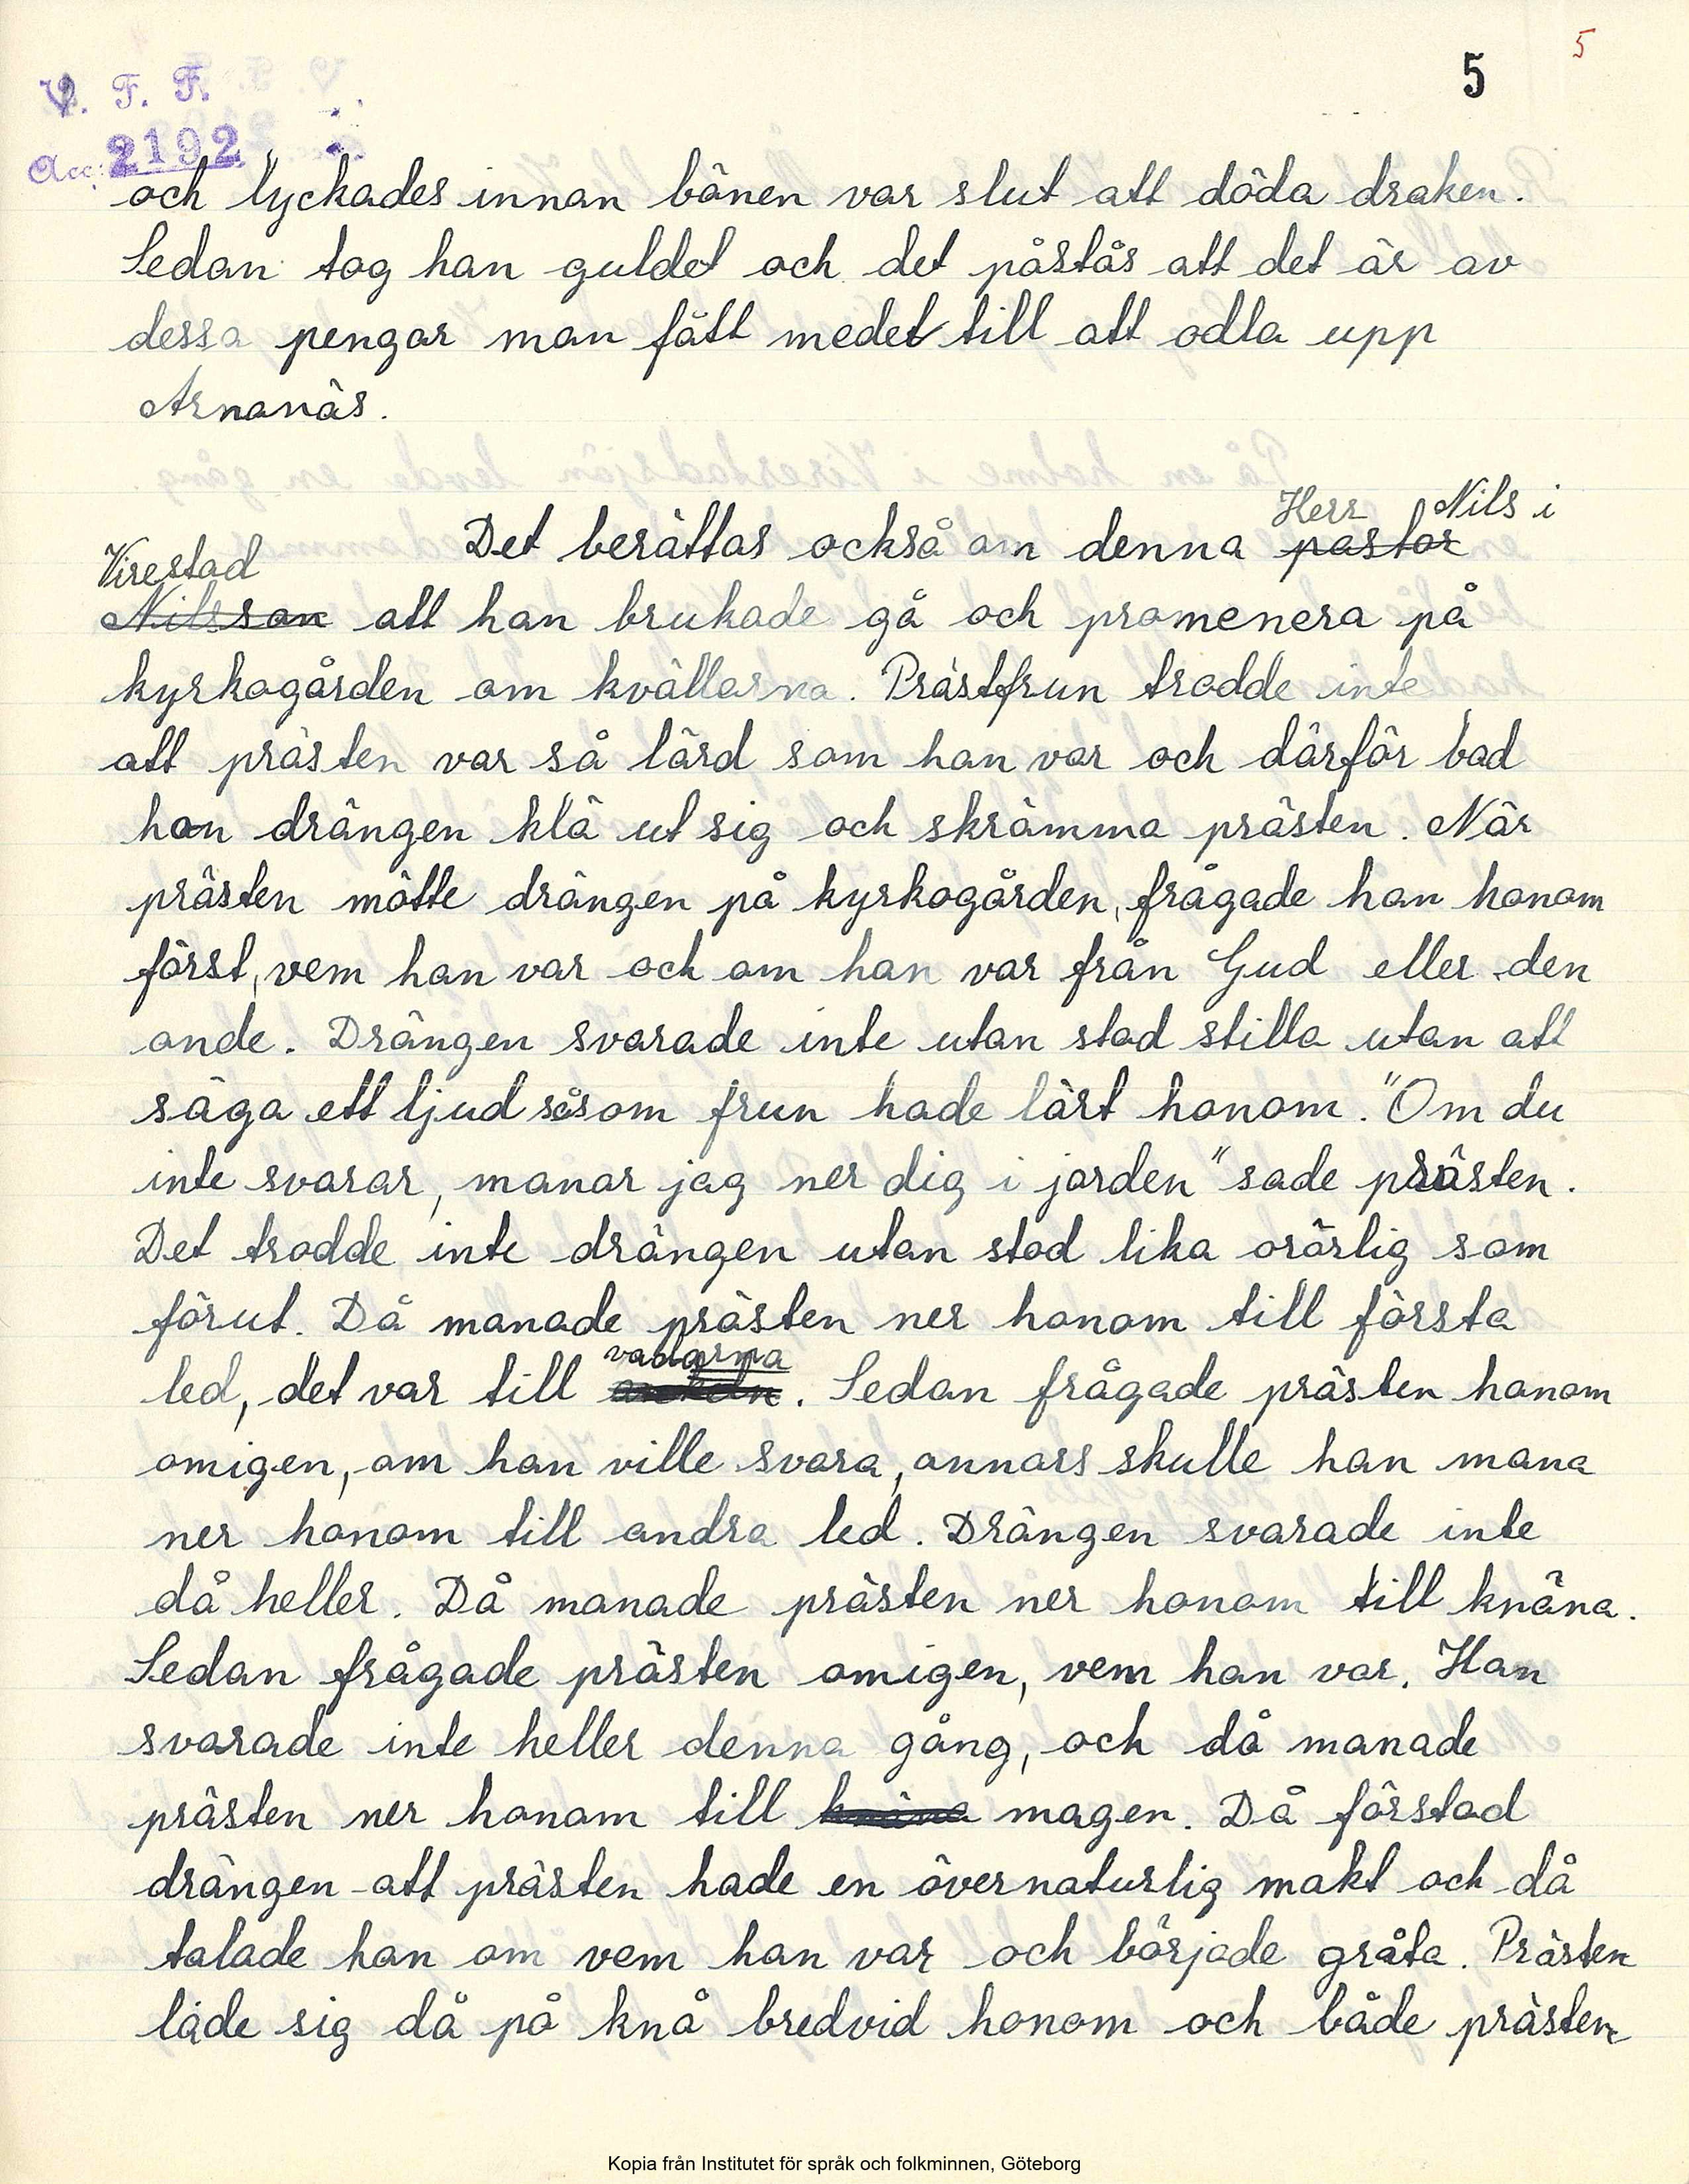 5
5
V. F. F.
Acc: 2192
och lyckades innan bönen var slut att döda draken.
Sedan tog han guldet och det påstås att det är av
dessa pengar man fått medel till att odla upp
Arnanäs.
Herr Nils i
Det berättas också om denna pastor
Virestad
Nilsson att han brukade gå och promenera på
kyrkogården om kvällarna. Prästfrun trodde inte
att prästen var så lärd som han var och därför bad
hon drängen klä ut sig och skrämma prästen. När
prästen mötte drängen på kyrkogården, frågade han honom
först, vem han var och om han var från Gud eller den
onde. Drängen svarade inte utan stod stilla utan att
säga ett ljud såsom frun hade lärt honom. "Om du
inte svarar, manar jag ner dig i jorden" sade prästen.
Det trodde inte drängen utan stod lika orörlig som
förut. Då manade prästen ner honom till första
vadarna
led, det var till . Sedan frågade prästen honom
omigen, om han ville svara, annars skulle han mana
ner honom till andra led. Drängen svarade inte
då heller. Då manade prästen ner honom till knäna.
Sedan frågade prästen omigen, vem han var. Han
svarade inte heller denna gång, och då manade
prästen ner honom till knäna magen. Då förstod
drängen att prästen hade en övernaturlig makt och då
talade han om vem han var och började gråta. Prästen
lade sig då på knä bredvid honom och både prästen
Kopia från Institutet för språk och folkminnen, Göteborg